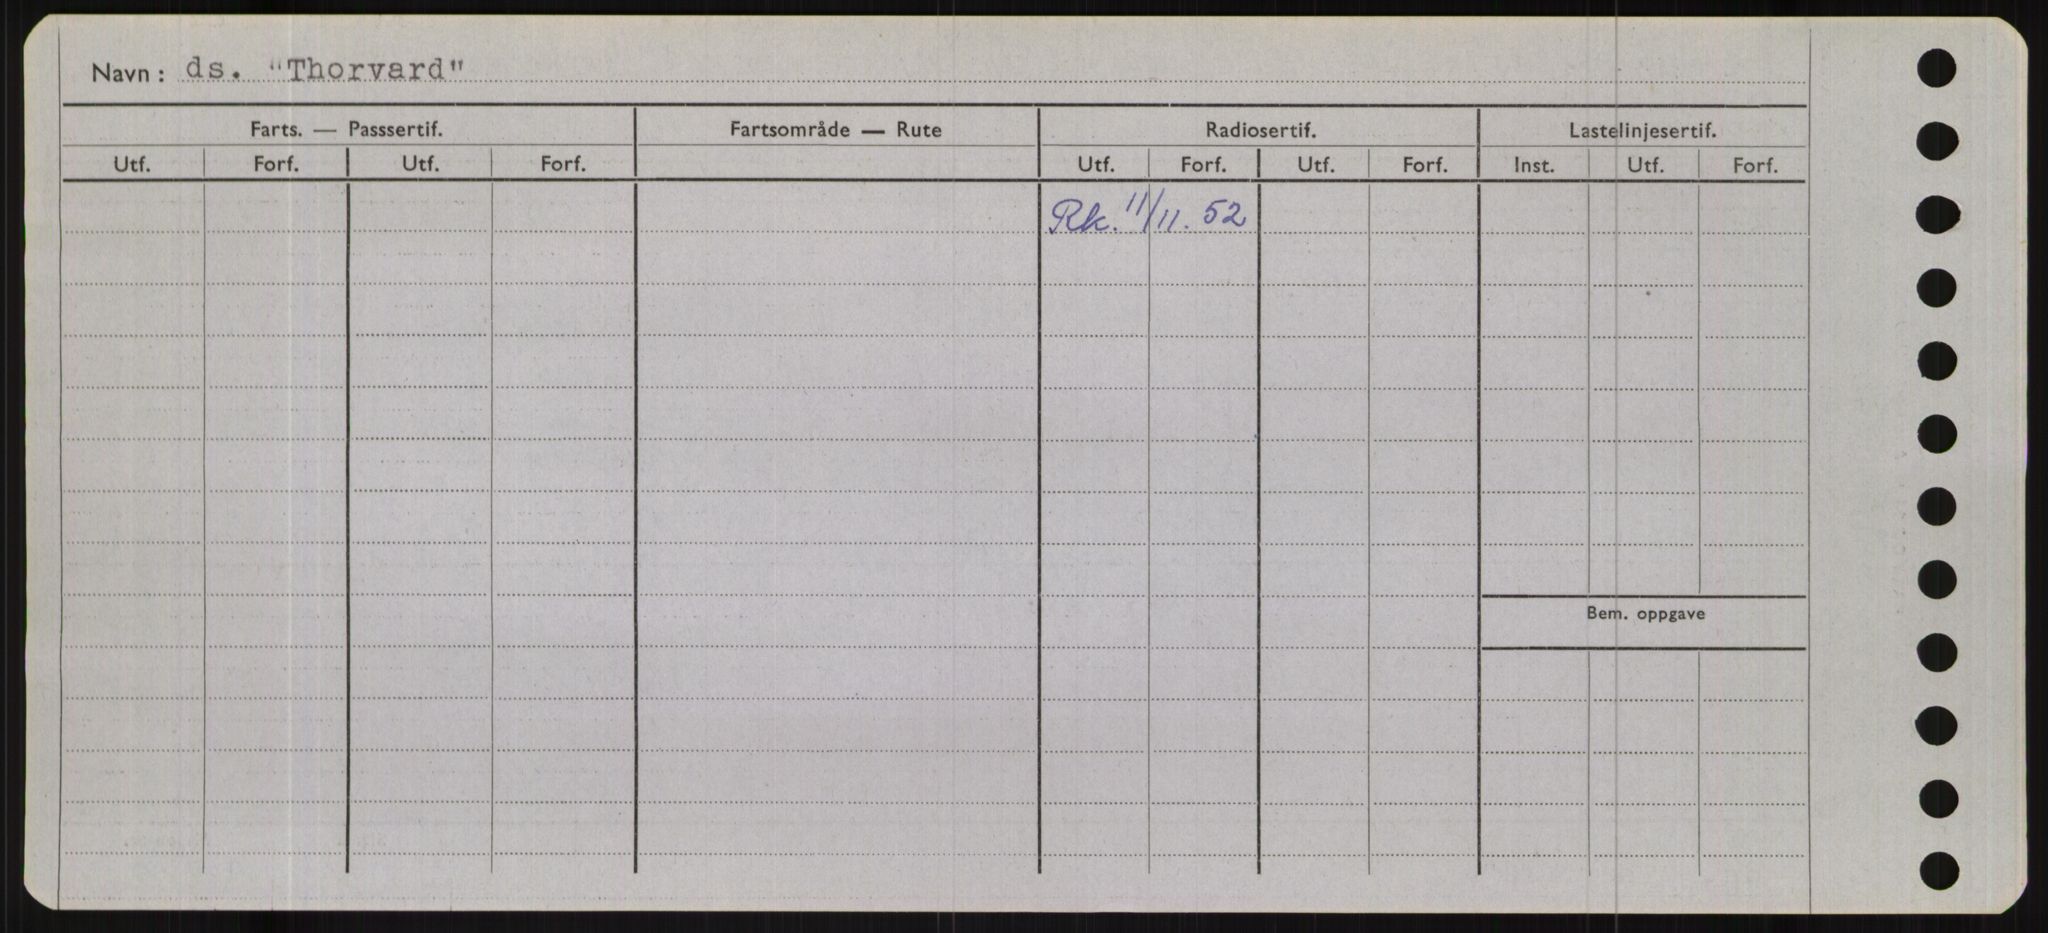 Navn: ds. "Thorvard"
Farts. — Passsertif. Fartsområde — Rute Radiosertif. Lastelinjesertif.
Utf. Forf. Utf. Forf. Utf. Forf. Utf. Forf. Inst. Utf. Forf.
Rk. 11/11. 52
Bem. oppgave